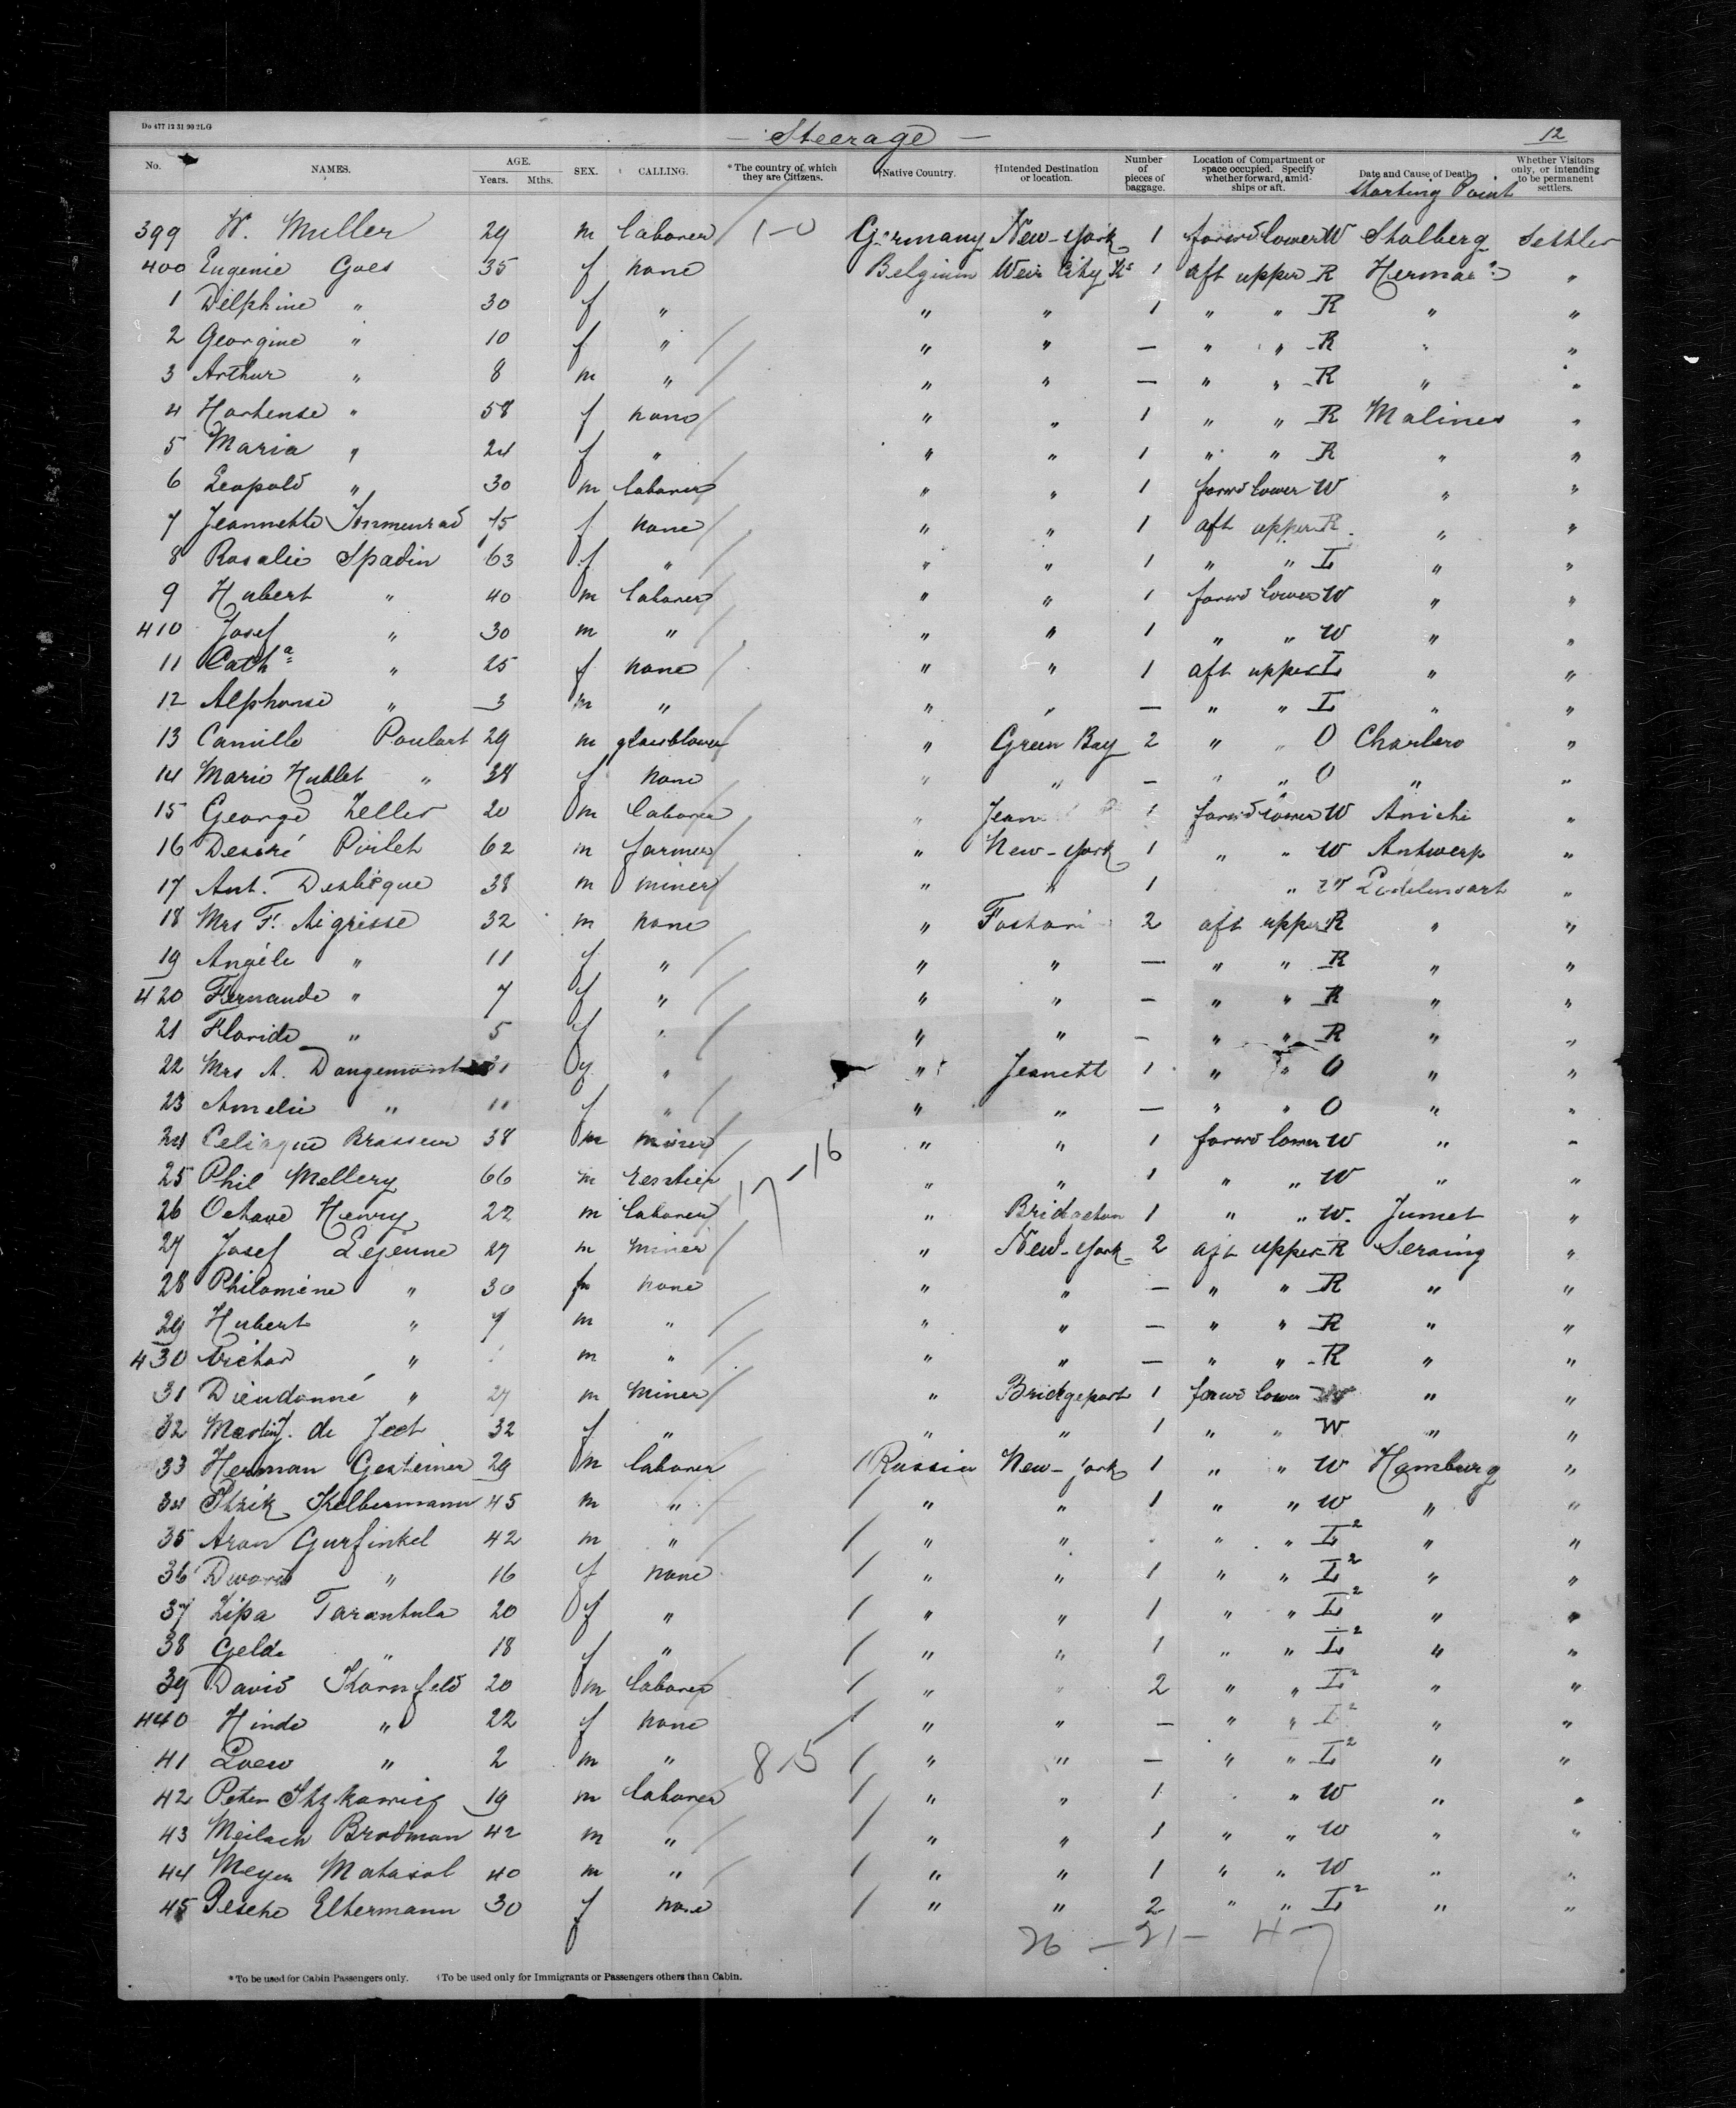 Do 477 12 31 90 2LG
— Steerage —
12
No. NAMES. AGE. Years. Mths. SEX. CALLING. *The country of which they are Citizens. †Native Country. †Intended Destination or location. Number of pieces of baggage. Location of Compartment or space occupied. Specify whether forward, amidships or aft. Date and Cause of Death. Whether Visitors only, or intending to be permanent settlers.
Starting Point
399 W. Muller 29 m laborer 1-0 Germany New-York 1 forwd lower W Stolberg Settler
400 Eugenie Goes 35 f none Belgium Weir City Ks 1 aft upper R "
1 Delphine " 30 f " " " 1 " " R " "
2 Georgine " 10 f " " " — " " R " "
3 Arthur " 8 m " " " — " " R " "
4 Hortense " 58 f none " " 1 " " R Malines "
5 Maria " 24 f " " " 1 " " R " "
6 Leopold " 30 m laborer " " 1 forwd lower W " "
7 Jeannette 75 f none " " 1 aft upper R " "
8 Rosalie Spadin 63 f " " " 1 " " L " "
9 Hubert " 40 m laborer " " 1 forwd lower W " "
410 Josef " 30 m " " " 1 " " W " "
11 Catha " 25 f none " " 1 aft upper L " "
12 Alphonse " 3 m " " " — " " L " "
13 Camille Poulart 29 m glassblower " Green Bay 2 " " O Charlero "
14 Marie Hublet " 38 f none " " — " " O " "
15 George Zeller 20 m laborer " 1 forwd lower W Aniche "
16 Desiré Pirlet 62 m farmer " New-York 1 " " W Antwerp "
17 Ant. 38 m miner " " 1 " "
18 Mrs F. Aigrisse 32 m none " 2 aft upper R " "
19 Angéle " 11 f " " " — " " R " "
420 Fernande " 7 f " " " — " " R " "
21 Floride " 5 f " " " — " " R " "
22 Mrs A. Dangemont 31 " " Jeanett 1 " " O " "
23 Amelie " 11 f " " " — " " O " "
24 Brasseur 38 m miner " " 1 forwd lower W " "
25 Phil Mellery 66 m 17-16 " " 1 " " W " "
26 Octave Henry 22 m laborer " 1 " " W. Jumet "
27 Josef Lejeune 27 m miner " New-York 2 aft upper R Seraing "
28 Philoméne " 30 f none " " — " " R " "
29 Hubert " 7 m " " " — " " R " "
430 Victor " m " " " — " " R " "
31 Dieudonné " 27 m miner " Bridgeport 1 forwd lower " "
32 32 f " " " 1 " " W " "
33 Herman Gesteiner 29 m laborer Russia New-York 1 " " W Hamburg "
34 Itzik Kelbermann 45 m " " " 1 " " W " "
35 Aron Gurfinkel 42 m " " " " " L2 " "
36 " 16 f none " " 1 " " L2 " "
37 Zipa Tarantula 20 f " " " 1 " " L2 " "
38 Gelde " 18 f " " " 1 " " L2 " "
39 David Kornfeld 20 m laborer " " 2 " " L2 " "
440 Hinde " 22 f none " " — " " L2 " "
41 " 2 m " 8-5 " " — " " L2 " "
42 Peter Itzkowicz 19 m laborer " " 1 " W " "
43 Meilach Brodman 42 m " " " 1 " " W " "
44 Meyer Matasol 40 m " " " 1 " " W " "
45 Pesche Eltermann 30 f none " " 2 " " L2 " "
26 — 21 — 47
*To be used for Cabin Passengers only. †To be used only for Immigrants or Passengers others than Cabin.